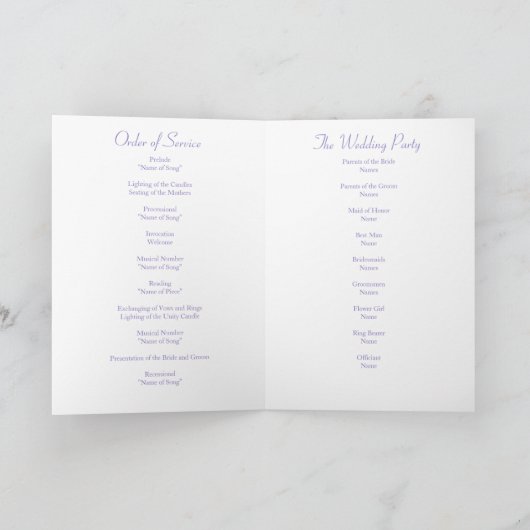 Order of Service
Prelude
"Name of Song"
Lighting of the Candles
Seating of the Mothers
Processional
"Name of Song"
Invocation
Welcome
Musical Number
"Name of Song"
Reading
"Name of Piece"
Exchanging of Vows and Rings
Lighting of the Unity Candle
Musical Number
"Name of Song"
Presentation of the Bride and Groom
Recessional
"Name of Song"
The Wedding Party
Parents of the Bride
Names
Parents of the Groom
Names
Maid of Honor
Name
Best Man
Name
Bridesmaids
Names
Groomsmen
Names
Flower Girl
Name
Ring Bearer
Name
Officiant
Name